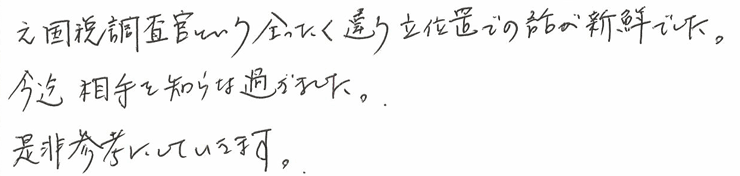 元国税調査官という全ったく違う立位置での話が新鮮でした。
今迄相手を知らな過ぎました。
是非参考にしていきます。